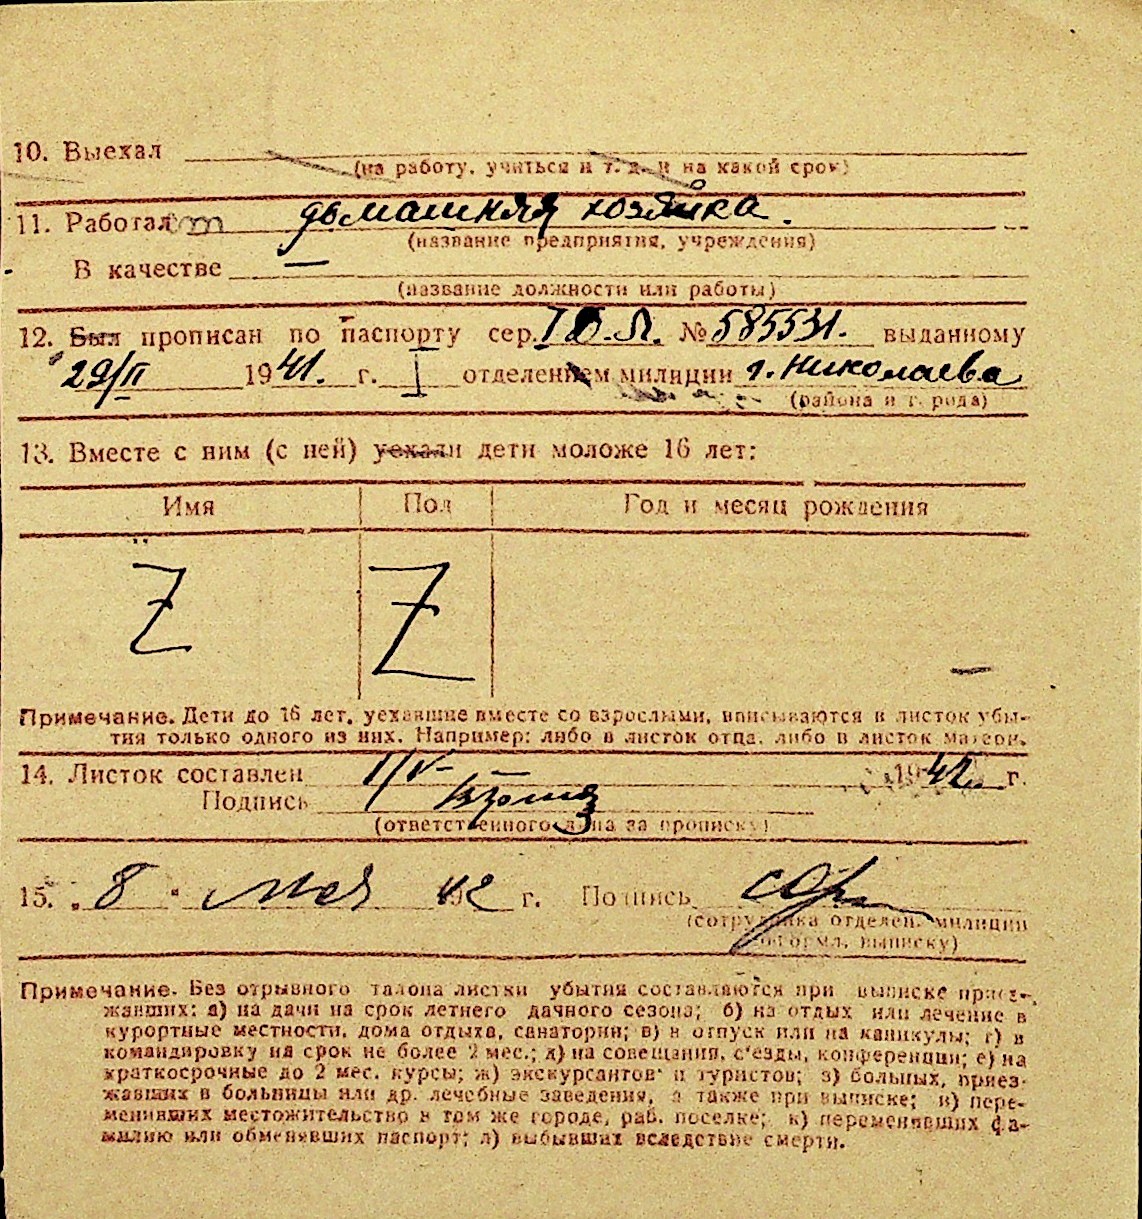 10. Выехал
(на работу, учиться и т. д. и на какой срок)
11. Работает домашняя хозяйка.
(название предприятия, учреждения)
В качестве —
(название должности или работы)
12. Был прописан по паспорту сер. № 585531. выданному
29/II 1941. г. I отделением милиции г. Николаева
(района и города)
13. Вместе с ним (с ней) уехали дети моложе 16 лет:
Имя Пол Год и месяц рождения
Z Z —
Примечание. Дети до 16 лет, уехавшие вместе со взрослыми, вписываются в листок убы-
тия только одного из них. Например: либо в листок отца, либо в листок матери.
14. Листок составлен 1/V — 1942. г.
Подпись
(ответственного лица за прописку)
15. „8" мая 1942 г. Подпись
(сотрудника отделен. милиции
оформл. выписку)
Примечание. Без отрывного талона листки убытия составляются при выписке приез-
жавших: а) на дачи на срок летнего дачного сезона; б) на отдых или лечение в
курортные местности, дома отдыха, санатории; в) в отпуск или на каникулы; г) в
командировку на срок не более 2 мес.; д) на совещания, с'езды, конференции; е) на
краткосрочные до 2 мес. курсы; ж) экскурсантов и туристов; з) больных, приез-
жавших в больницы или др. лечебные заведения, а также при выписке; и) пере-
менивших местожительство в том же городе, раб. поселке; к) переменивших фа-
милию или обменявших паспорт; л) выбывших вследствие смерти.